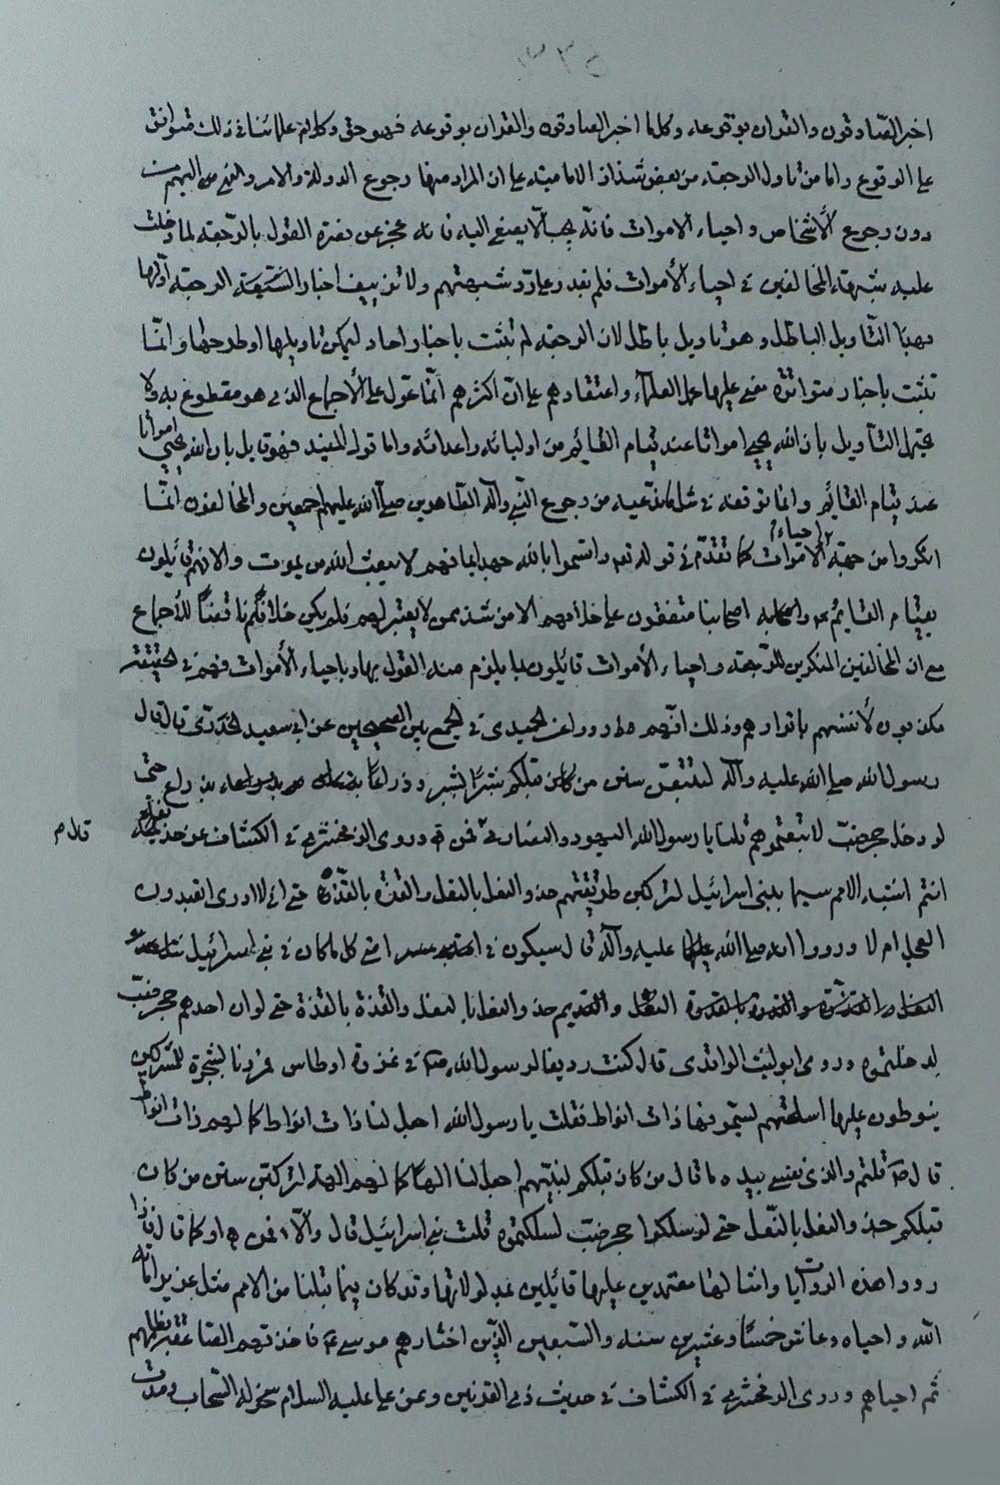 اخبر الصادقون والقران بوقوعه وكلما اخبر الصادقون والقران بوقوعه فهو حق وكلام علمائنا في ذلك متوافق
على الوقوع واما من تاول الرجعة من بعض شذاذ الامامية على ان المراد منها رجوع الدولة والامر والنهي اليهم من
دون رجوع الأشخاص واحياء الاموات فانه يجب ألا يصغى اليه فانه عجز عن نصرة القول بالرجعة لما دخلت
عليه شبهة المخالفين في احياء الأموات فلم يقدر على رد شبهتهم ولا تزييف اخبار الشيعة الرجعة أولها
بهذا التأويل الباطل وهو تاويل باطل لان الرجعة لم تثبت باخبار احاد ليمكن تاويلها او طرحها وانما
تثبت باخبار متواترة مضى عليها عمل العلماء واعتقادهم على ان اكثرهم انما عول على الأجماع الذي هو مقطوع به ولا
يحتمل التأويل بان الله يحيي امواتا عند قيام القائم من اوليائه واعدائه واما قول المفيد فهو قايل بان الله يحيي امواتا
عند قيام القائم وانما توقفه في من رجوع النبي واله الطاهرين صلى الله عليهم اجمعين والمخالفون انما
انكروا من جهة احياء الاموات كما تقدم في قوله تعالى واقسموا بالله جهد ايمانهم لا يبعث الله من يموت والا فهم قائلون
بقيام القائم واصحابه اصحابنا متفقون على خلافهم الا من شذ ممن لا يعتبر لهم فلم يكن خلافكم ناقضا للأجماع
مع ان المخالفين المنكرين للرجعة واحياء الأموات قائلون بما يلزم منه القول بها وباحياء الأموات فهم في الحقيقة
مكذبون لأنفسهم باقرارهم وذلك انهم الحميدى في الجمع بين الصحيحين عن ابي سعيد الخدرى قال قال
رسول الله صلى الله عليه واله لتتبعن سنن من كان قبلكم شبرا بشبر وذراعا بذراع حتى
لو دخلوا جحر ضب لاتبعتموهم قلنا يا رسول الله اليهود والنصارى قال فمن وروى الزمخشري في الكشاف عن حذيفة
قال
انتم اشبه الامم سيما ببني اسرائيل لتركبن طريقتهم حذو النعل بالنعل والقذة بالقذة حتى اني لا ادرى اتعبدون
العجل ام لا ورووا انه صلى الله عليه واله قال سيكون في امتي كل ما كان في بني اسرائيل
حذو النعل بالنعل والقذة بالقذة حتى لو ان احدهم جحر ضب
لدخلتموه وروى ابو ليث الواقدى قال كنت رديفا لرسول الله في غزوة اوطاس فمررنا بشجرة للمشركين
ينوطون عليها اسلحتهم يسمونها ذات انواط فقلت يا رسول الله اجعل لنا ذات انواط كما لهم ذات انواط
قال قلتم والذي نفسي بيده ما قال من كان قبلكم لنبيهم اجعل لنا الها كما لهم الهة لتركبن سنن من كان
قبلكم حذو النعل بالنعل حتى لو سلكوا جحر ضب لسلكتموه قلت بني اسرائيل قال والا فمن او كما قال فاذا
رووا هذه الروايات وامثالها معتمدين عليها قائلين بمدلولاتها وقد كان فيما قبلنا من الامم مثل عزير اماته
الله واحياه وعاش خمسا وعشرين سنة والسبعين الذين اختارهم موسى فاخذتهم الصاعقة بظلمهم
ثم احياهم وروى الزمخشري في الكشاف في حديث ذي القرنين وعن علي عليه السلام سخر له السحاب ومدت